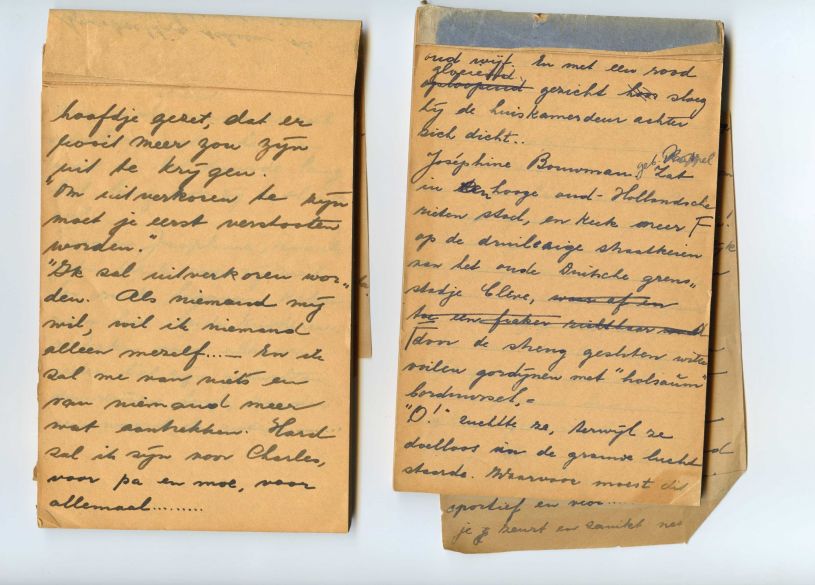 hoofdje gezet, dat er
nooit meer zou zijn
uit te krijgen.
"Om uitverkoren te zijn
moet je eerst verstooten
worden."
"Ik zal uitverkoren wor„
den. Als niemand mij
wil, wil ik niemand
alleen mezelf...— En ik
zal me van niets en
van niemand meer
wat aantrekken. Hard
zal ik zijn voor Charles,
voor pa en moe, voor
allemaal.........
oud wijf. En met een rood
gloeiend
oploopend gezicht sloeg
hij de huiskamerdeur achter
zich dicht..
Joséphine Bouwman, geb. Zat
in hooge oud-Hollandsche
rieten stoel, en keek neer
op de druilerige straatkeien
van het oude Duitsche grens„
stadje Clève, waar af en
toe een
door de streng gesloten witte
voilen gordijnen met "holsaüm"
borduursel,
"O!" zuchtte ze, terwijl ze
doelloos in de grauwe lucht
staarde. Waarvoor moest dit
sportief en voor
je zeurt en zanikt net